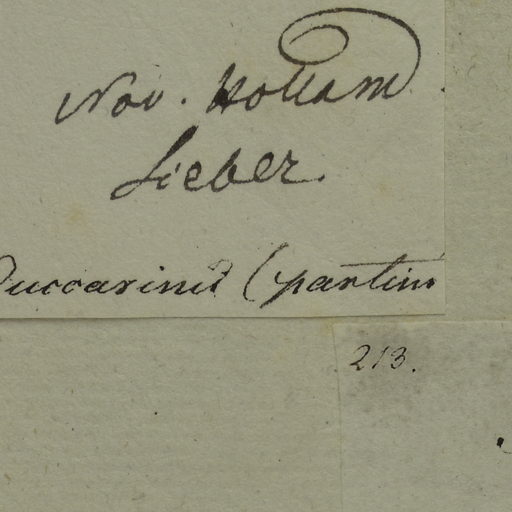 Nov. Holland.
Sieber.
Zuccarinii (partim
213.